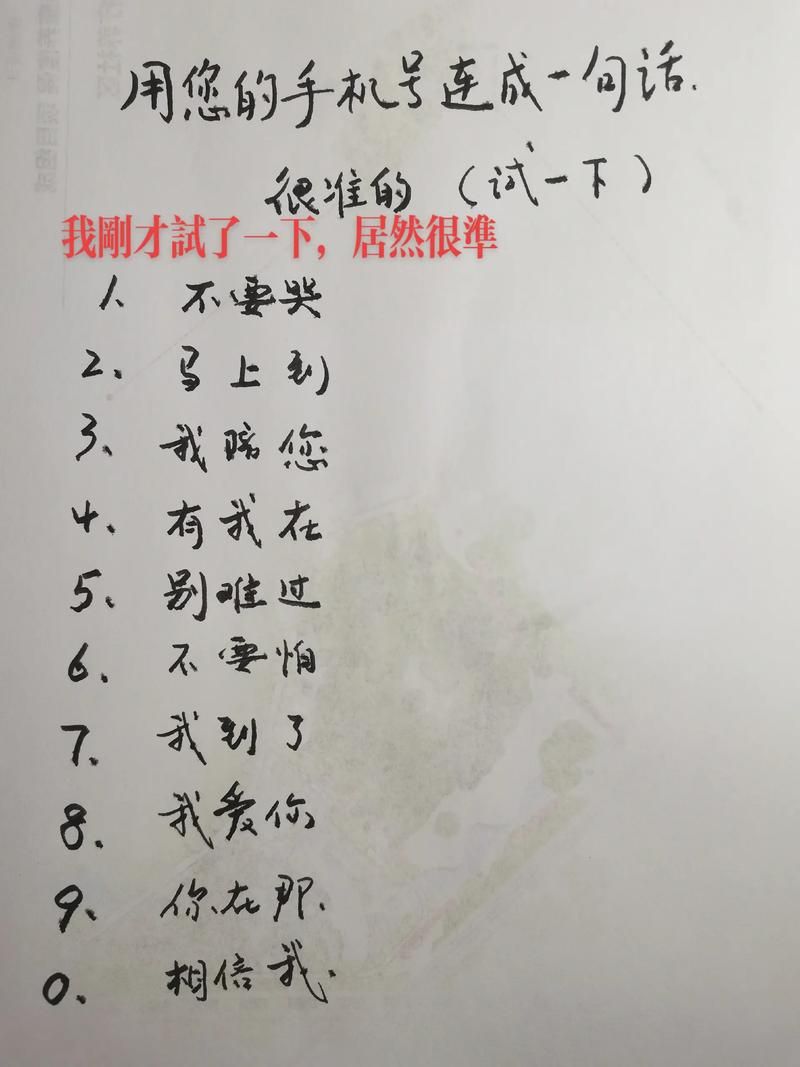 用您的手机号连成一句话.
很准的（试一下）
我剛才試了一下，居然很準
1、不要哭
2、马上到
3、我赔您
4、有我在
5、别难过
6、不要怕
7、我到了
8、我爱你
9、你在那.
0、相信我.